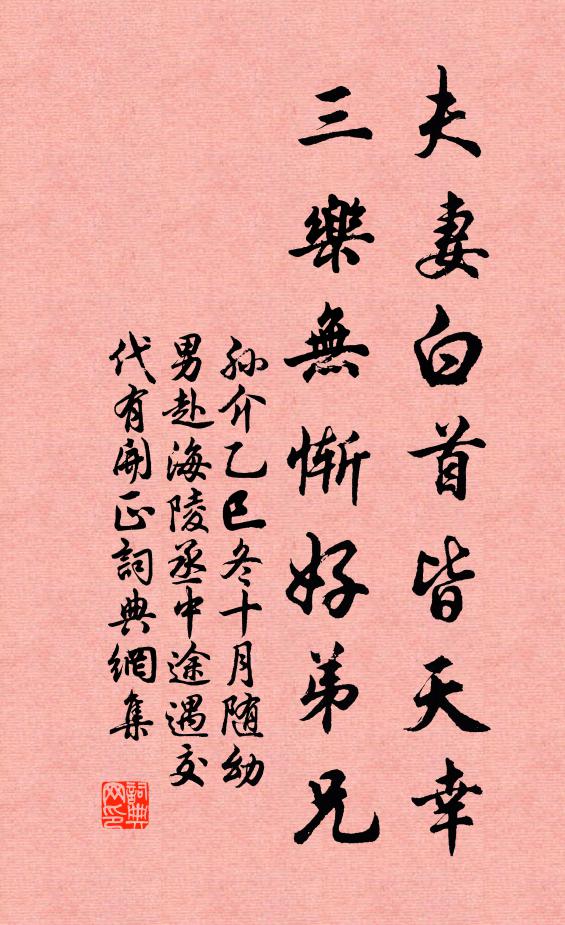 夫妻白首皆天幸
三樂無慚好弟兄
孙介乙巳冬十月随幼
男赴海陵丞中途遇交
代有開正詞典網集
詞典
网印